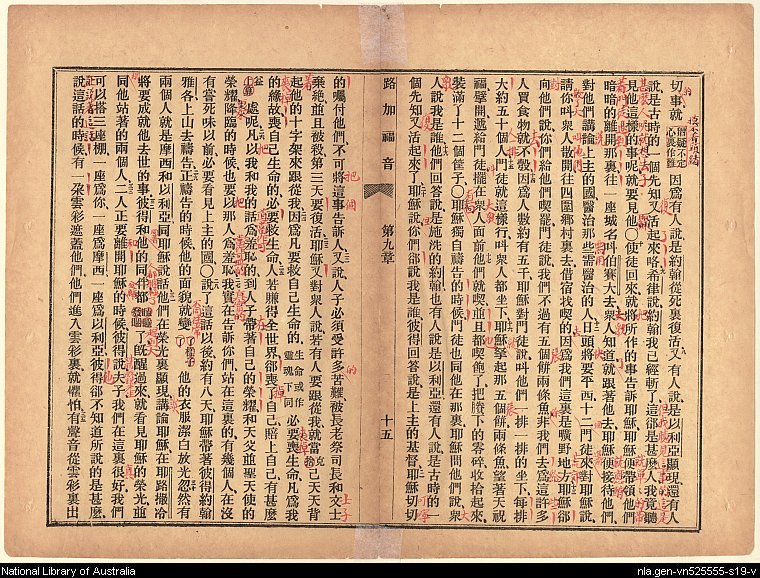 切事就猶疑不定心裏作難因爲有人說是約翰從死裏復活又有人說是以利亞顯現還有人
說是古時的一個先知又活起來咯希律說約翰我已經斬了這卻是甚麼人我竟聽
見他這樣的事呢就要見他〇使徒回來就將所作的事告訴耶穌耶穌便帶領他們
暗暗的離開那裏往一座城名叫伯賽大去衆人知道就跟著他去耶穌便接待他們
對他們講論上主的國醫治那些需醫治的人日頭將要平西十二門徒來對耶穌說
請你叫衆人散開往四圍鄉村裏去借宿找喫的因爲我們這裏是曠野地方耶穌卻
向他們說你們給他們喫罷門徒說我們不過有五個餅兩條魚非我們去爲這許多
人買食物就不彀因爲人數約有五千耶穌對門徒說叫他們一排一排的坐下每排
大約五十個人門徒就這樣行叫衆人都坐下耶穌拏起那五個餅兩條魚望著天祝
福擘開遞給門徒擺在衆人面前他們就喫並且都喫飽了把賸下的零碎收拾起來
裝滿了十二個筐子〇耶穌獨自禱告的時候門徒也同他在那裏耶穌問他們說衆
人說我是誰他們回答說是施洗的約翰也有人說是以利亞還有人說是古時的一
個先知又活起來了耶穌說你們卻說我是誰彼得回答說是上主的基督耶穌切切
路加福音 第九章 十五
的囑付他們不可將這事告訴人又說人子必須受許多苦難被長老祭司長和文士
棄絕並且被殺第三天要復活耶穌又對衆人說若有人要跟從我就當克己天天背
起他的十字架來跟從我因爲凡要救自己生命的生命或作靈魂下同必要喪生命凡爲我
的緣故喪自己生命的必要救生命人若賺得全世界卻喪了自己賠上自己有甚麼
益處呢凡以我和我的話爲羞恥的到人子帶著自己的榮耀和天父並聖天使的
榮耀降臨的時候也要以那人爲羞恥我實在告訴你們站在這裏的有幾個人在沒
有嘗死味以前必要看見上主的國〇說了這話以後約有八天耶穌帶著彼得約翰
雅各上山去禱告正禱告的時候他的面貌就變了他的衣服潔白放光忽然有
兩個人就是摩西和以利亞同耶穌說話他們在榮光裏顯現講論耶穌在耶路撒冷
將要成就他去世的事彼得和他的同伴都了旣醒過來就看見耶穌的榮光並
同他站著的兩個人二人正要離開耶穌的時候彼得說夫子我們在這裏很好我們
可以搭三座棚一座爲你一座爲摩西一座爲以利亞彼得卻不知道所說的是甚麼
說這話的時候有一朵雲彩遮蓋他們他們進入雲彩裏就懼怕有聲音從雲彩裏出
National Library of Australia
nla.gen-vn525555-s19-v